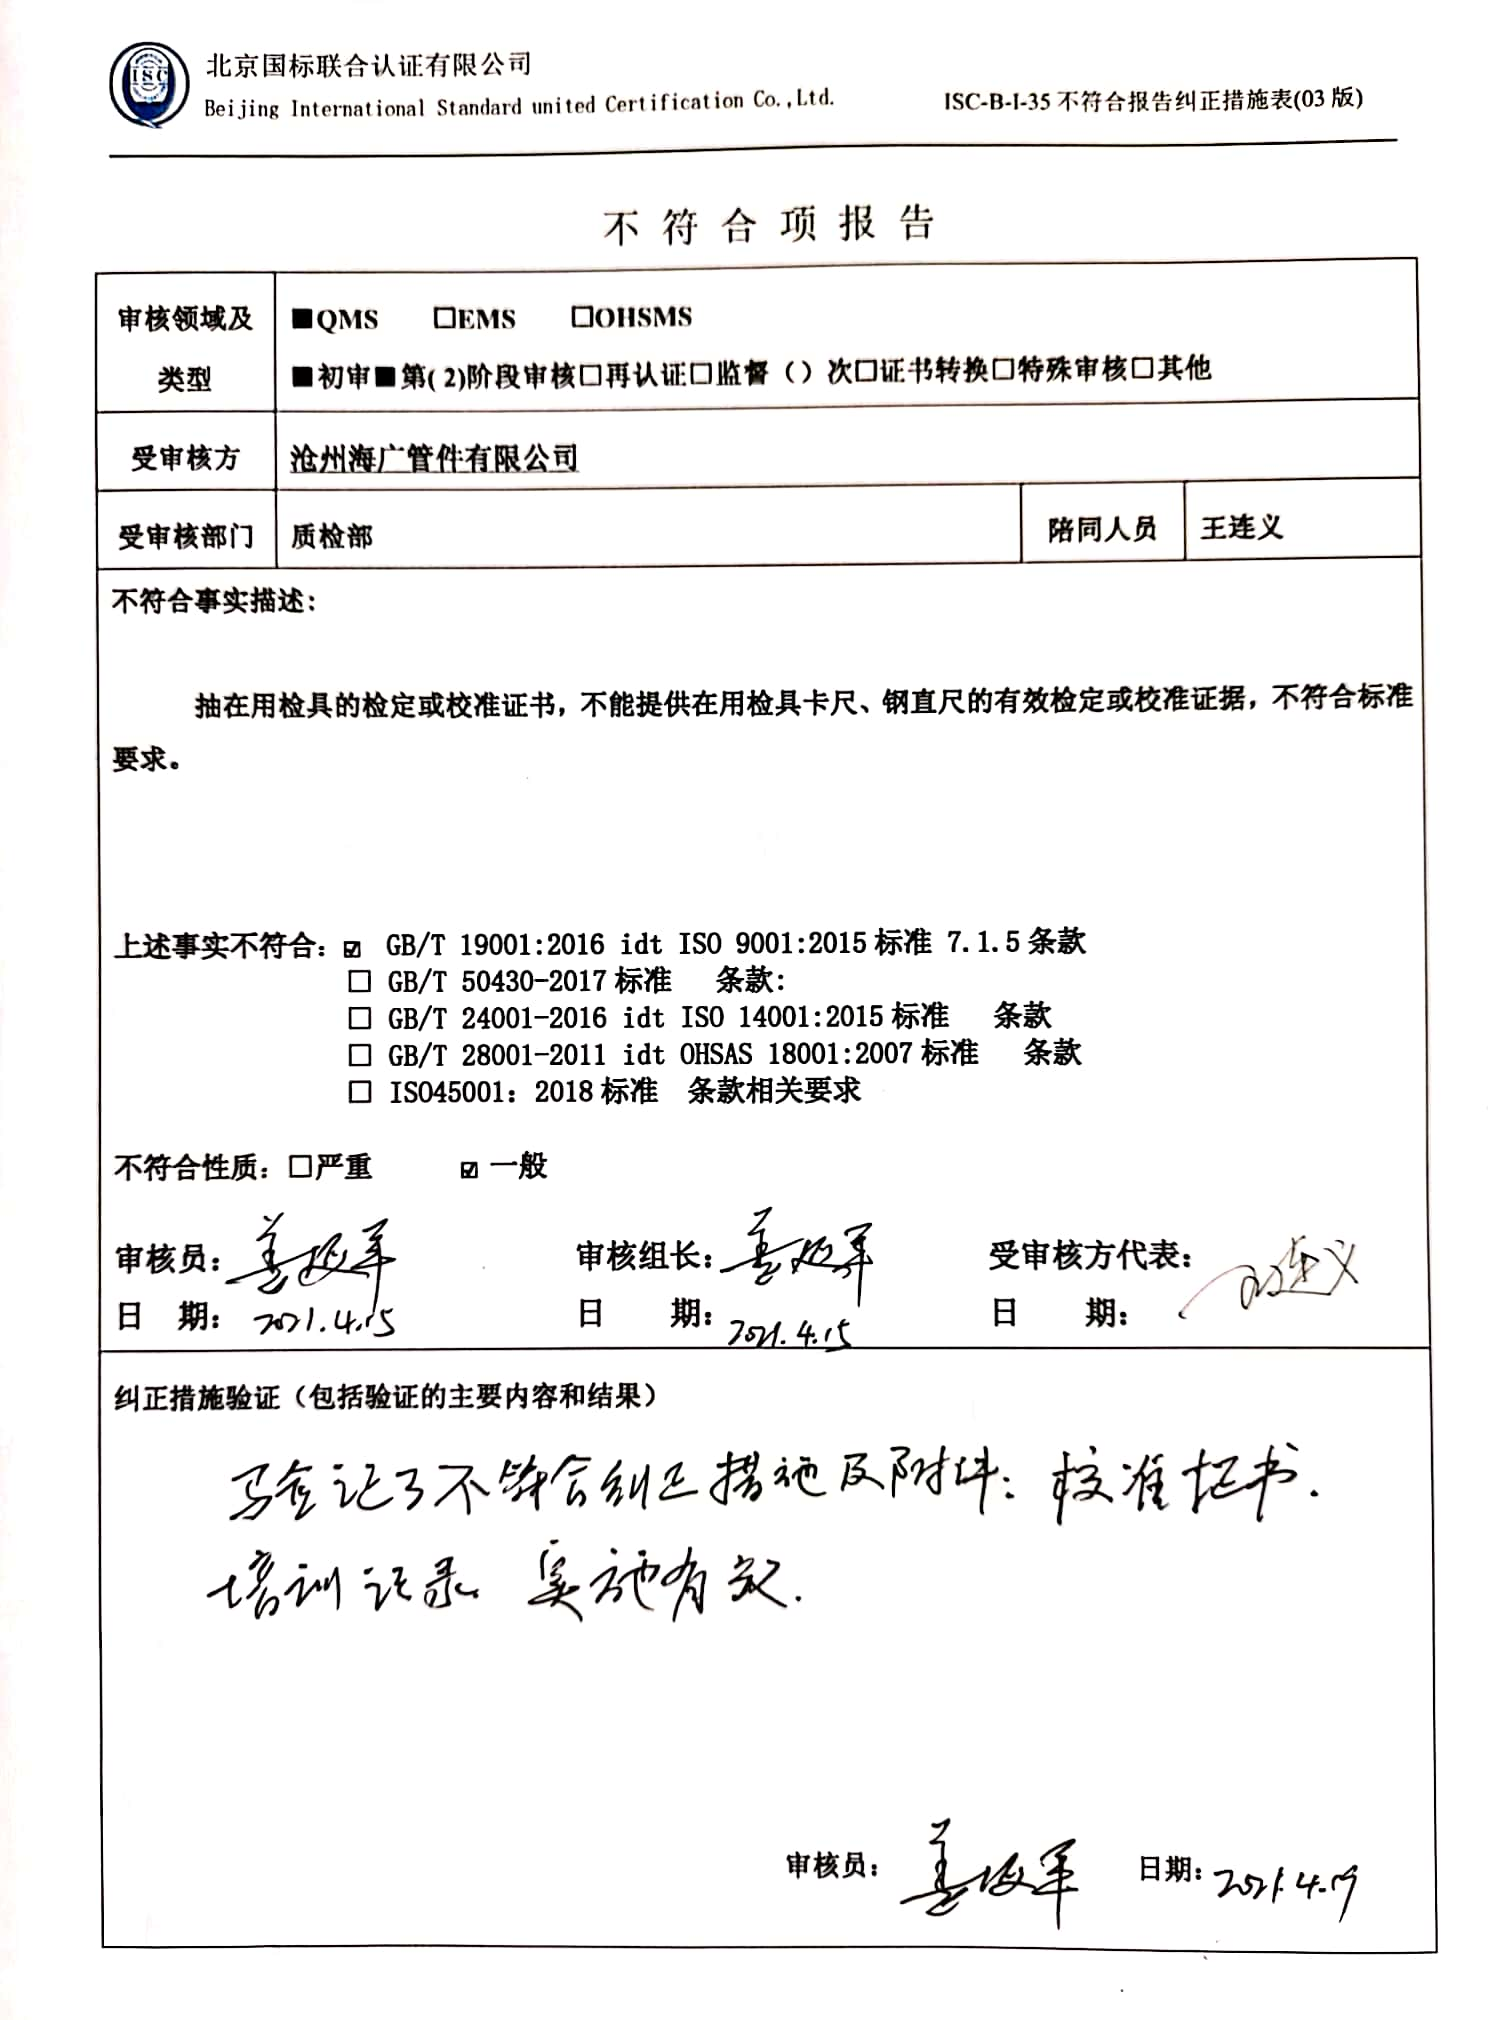 ISC
北京国标联合认证有限公司
Beijing International Standard united Certification Co.,Ltd.
ISC-B-I-35 不符合报告纠正措施表(03 版)
不符合项报告
审核领域及类型
■QMS □EMS □OHSMS
■初审■第( 2)阶段审核□再认证□监督（）次□证书转换□特殊审核□其他
受审核方
沧州海广管件有限公司
受审核部门
质检部
陪同人员
王连义
不符合事实描述：
抽在用检具的检定或校准证书，不能提供在用检具卡尺、钢直尺的有效检定或校准证据，不符合标准
要求。
上述事实不符合：☑ GB/T 19001:2016 idt ISO 9001:2015 标准 7.1.5 条款
□ GB/T 50430-2017 标准 条款：
□ GB/T 24001-2016 idt ISO 14001:2015 标准 条款
□ GB/T 28001-2011 idt OHSAS 18001:2007 标准 条款
□ ISO45001：2018 标准 条款相关要求
不符合性质：□严重 ☑ 一般
审核员： 审核组长： 受审核方代表：王连义
日 期：2021.4.15 日 期：2021.4.15 日 期：
纠正措施验证（包括验证的主要内容和结果）
验证了不符合纠正措施及附件：校准证书.
培训记录 实施有效.
审核员： 日期：2021.4.19